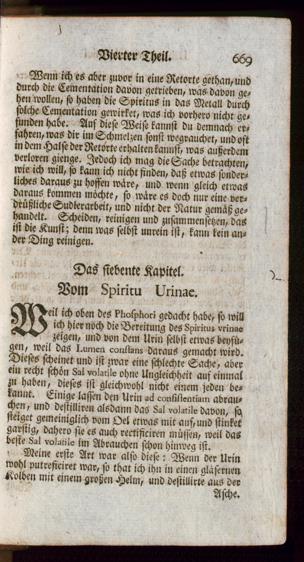 Vierter Theil. 669
Wenn ich es aber zuvor in eine Retorte gethan, und
durch die Cementation davon getrieben, was davon ge-
hen wollen, so haben die Spiritus in das Metall durch
solche Cementation gewirket, was ich vorhero nicht ge-
funden habe. Auf diese Weise kannst du demnach er-
fahren, was dir im Schmelzen sonst wegrauchet, und oft
in dem Halse der Retorte erhalten kannst, was ausserdem
verloren gienge. Jedoch ich mag die Sache betrachten,
wie ich will, so kann ich nicht finden, daß etwas sonder-
liches daraus zu hoffen wäre, und wenn gleich etwas
daraus kommen möchte, so wäre es doch nur eine ver-
drüßliche Sudlerarbeit, und nicht der Natur gemäß ge-
handelt. Scheiden, reinigen und zusammensetzen, das
ist die Kunst; denn was selbst unrein ist, kann kein an-
der Ding reinigen.
Das siebente Kapitel.
Vom Spiritu Urinae.
Weil ich oben des Phosphori gedacht habe, so will
ich hier noch die Bereitung des Spiritus urinae
zeigen, und von dem Urin selbst etwas beyfü-
gen, weil das Lumen constans daraus gemacht wird.
Dieses scheinet und ist zwar eine schlechte Sache, aber
ein recht schön Sal volatile ohne Ungleichheit auf einmal
zu haben, dieses ist gleichwohl nicht einem jeden be-
kannt. Einige lassen den Urin ad consistentiam abrau-
chen, und destilliren alsdann das Sal volatile davon, so
steiget gemeiniglich vom Oel etwas mit auf, und stinket
garstig, dahero sie es auch rectificiren müssen, weil das
beste Sal volatile im Abrauchen schon hinweg ist.
Meine erste Art war also diese: Wenn der Urin
wohl putreficiret war, so that ich ihn in einen gläsernen
Kolben mit einem großen Helm, und destillirte aus der
Asche.